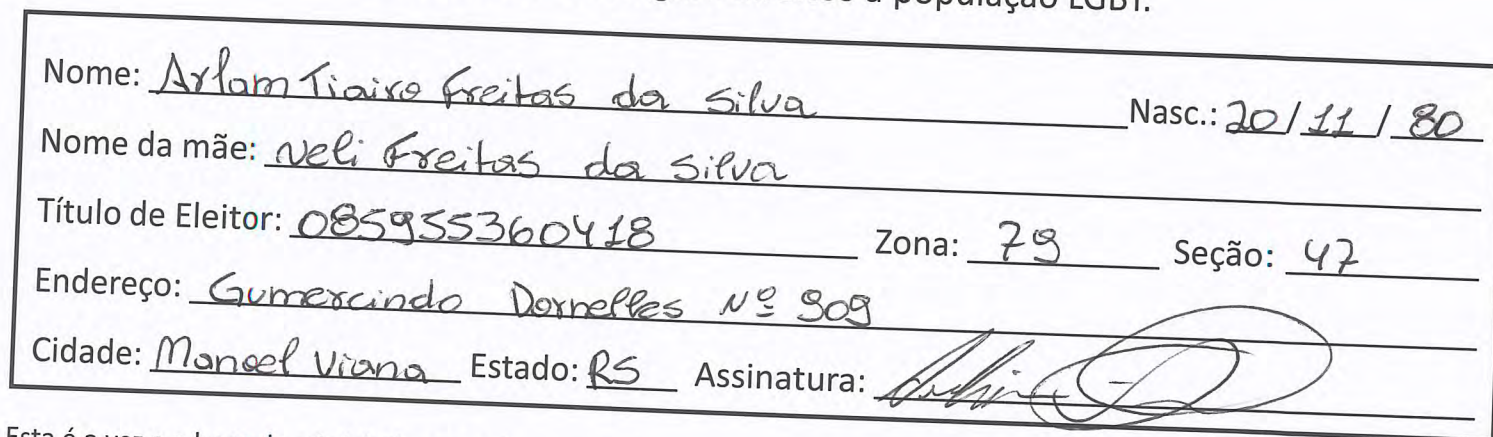 a população LGBT.
Nome: Arlam Tiairo Freitas da Silva Nasc.: 20/11/80
Nome da mãe: Neli Freitas da Silva
Título de Eleitor: 085955360418 Zona: 79 Seção: 47
Endereço: Gumercindo Dornelles Nº 909
Cidade: Manoel Viana Estado: RS Assinatura:
Esta é a